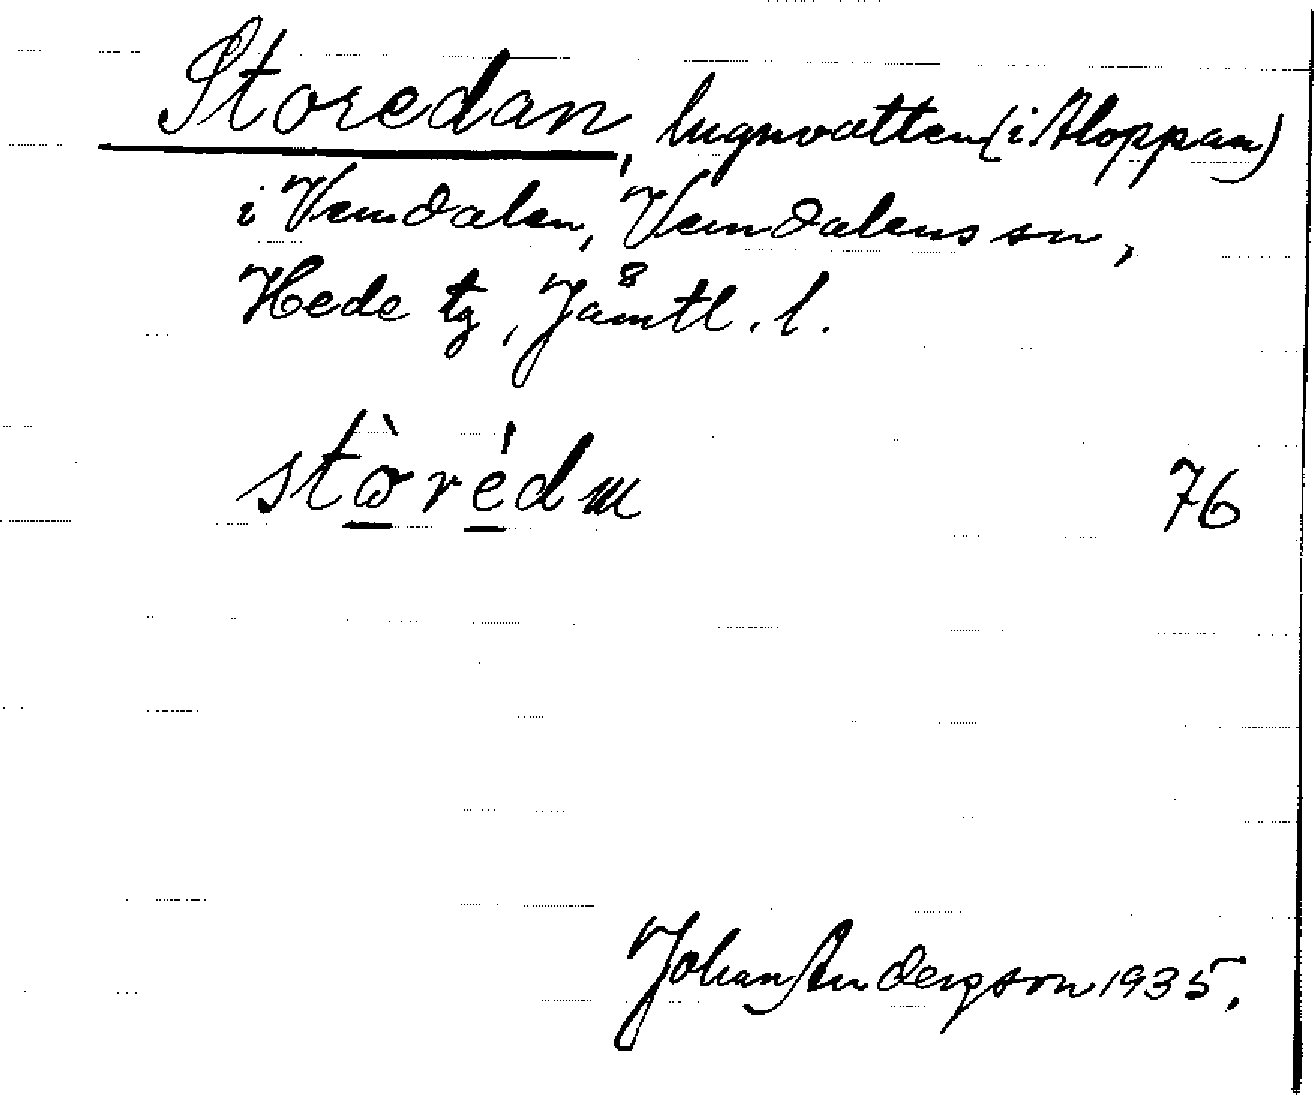 Storedan, lugnvatten (i Aloppan)
i Vemdalen, Vemdalens sn,
Hede tg, Jämtl. l.
stòrédm 76
Johan Andersson 1935.